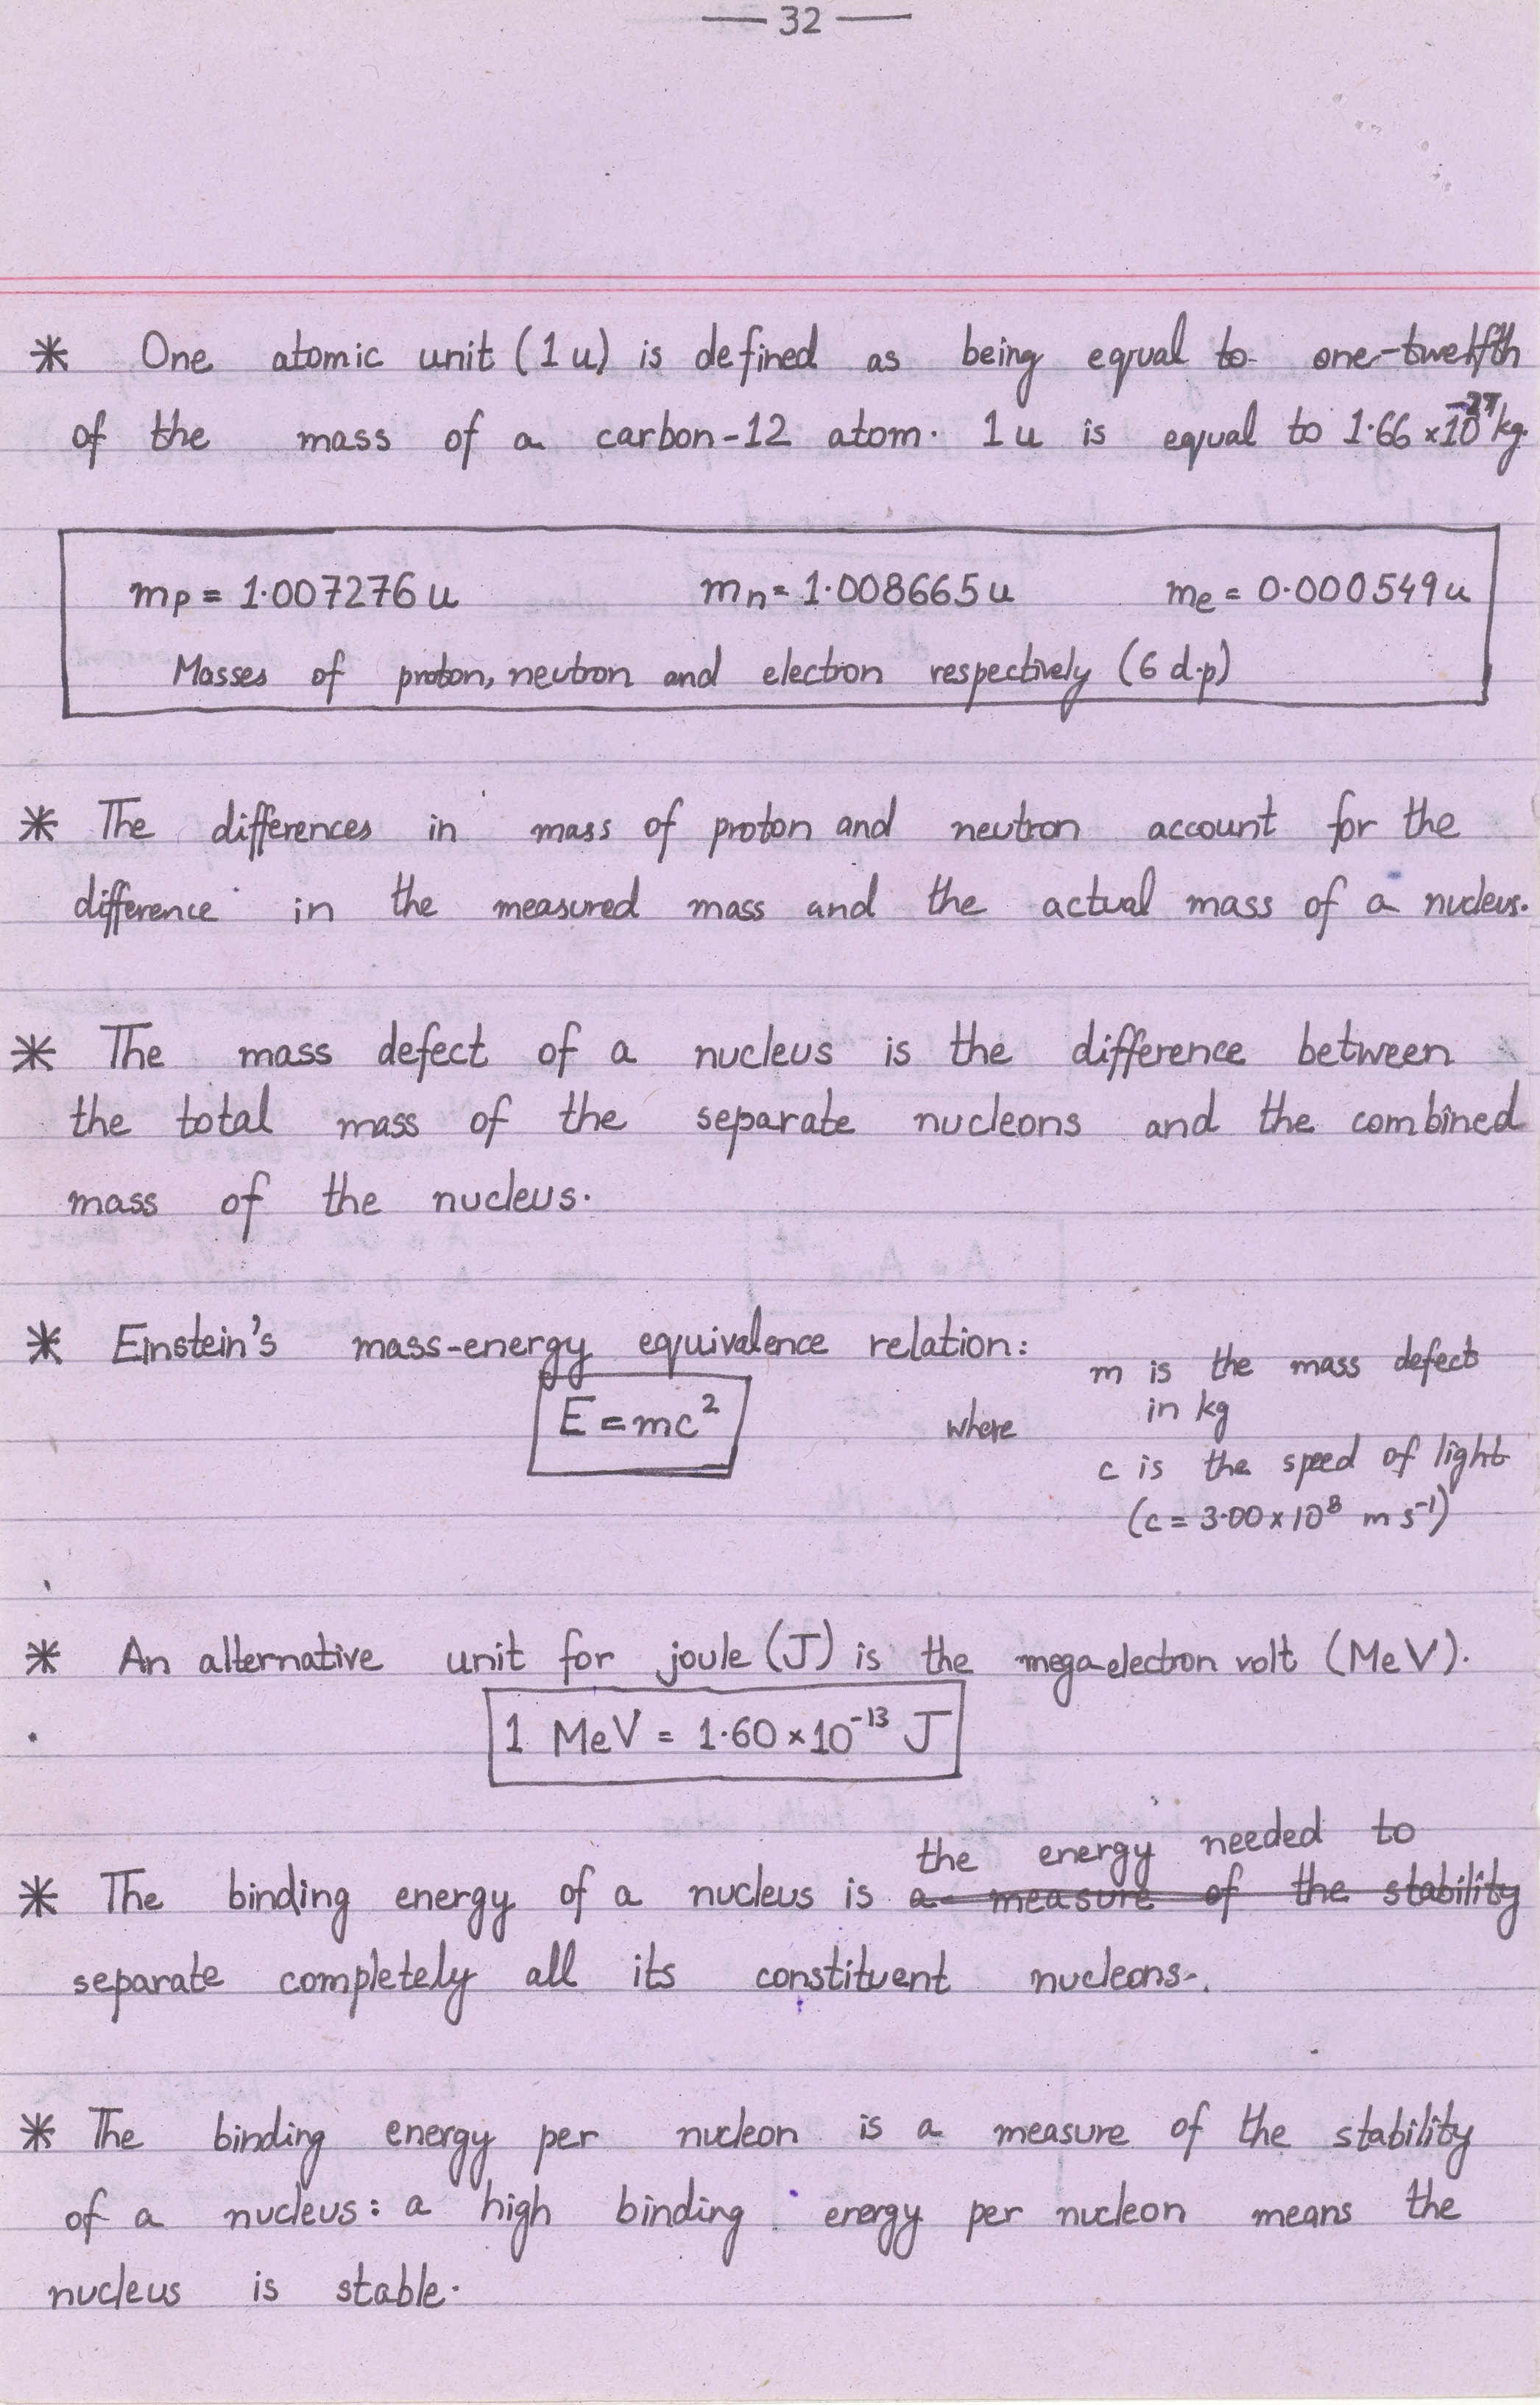 — 32 —
* One atomic unit (1 u) is defined as being equal to one-twelfth
of the mass of a carbon-12 atom. 1 u is equal to 1.66 × 10⁻²⁷ kg.
mₚ = 1.007276 u mₙ = 1.008665 u mₑ = 0.000549 u
Masses of proton, neutron and electron respectively (6 d.p)
* The differences in mass of proton and neutron account for the
difference in the measured mass and the actual mass of a nucleus.
* The mass defect of a nucleus is the difference between
the total mass of the separate nucleons and the combined
mass of the nucleus.
* Einstein's mass-energy equivalence relation:
E = mc²
where
m is the mass defect
in kg
c is the speed of light
(c = 3.00 × 10⁸ m s⁻¹)
* An alternative unit for joule (J) is the mega-electron volt (MeV).
1 MeV = 1.60 × 10⁻¹³ J
the energy needed to
* The binding energy of a nucleus is a measure of the stability
separate completely all its constituent nucleons.
* The binding energy per nucleon is a measure of the stability
of a nucleus: a high binding energy per nucleon means the
nucleus is stable.